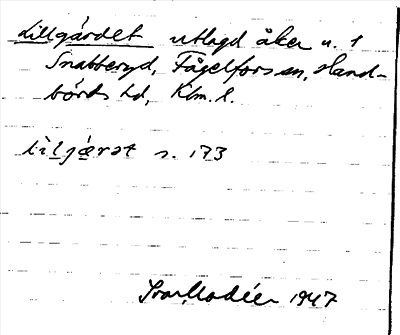 Lillgärdet utlagd åker u. 1
Snabberyd, Fågelfors sn, Hand-
börds hd, Klm. l.
lìlgǽrət s. 173
Ivar Modéer 1947